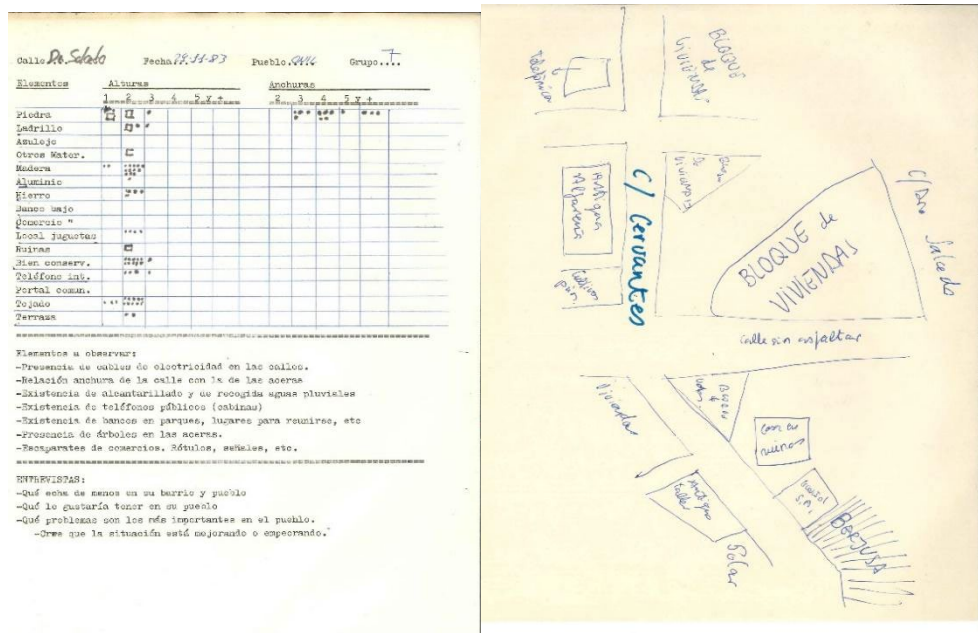 Calle Dr. Salcedo Fecha 29-11-83 Pueblo Grupo 7
Elementos Alturas Anchuras
1 2 3 4 5 y + 2 3 4 5 y +
Piedra
Ladrillo
Azulejo
Otros Mater.
Madera
Aluminio
Hierro
Banco bajo
Comercio "
Local juguetes
Ruinas
Bien conserv.
Teléfono int.
Portal comun.
Tejado
Terraza
Elementos a observar:
-Presencia de cables de electricidad en las calles.
-Relación anchura de la calle con la de las aceras
-Existencia de alcantarillado y de recogida aguas pluviales
-Existencia de teléfonos públicos (cabinas)
-Existencia de bancos en parques, lugares para reunirse, etc
-Presencia de árboles en las aceras.
-Escaparates de comercios. Rótulos, señales, etc.
ENTREVISTAS:
-Qué echa de menos en su barrio y pueblo
-Qué le gustaría tener en su pueblo
-Qué problemas son los más importantes en el pueblo.
-Cree que la situación está mejorando o empeorando.
Telefónica
BLOQUE
de
VIVIENDAS
Antigua
Alfarería
C/ Cervantes
de
Viviendas
BLOQUE de
VIVIENDAS
C/ Dro
Salcedo
Calle sin asfaltar
Viviendas
Bloque
Casa en
ruinas
Antiguo
Taller
Solar
S.A.
BERJUSA